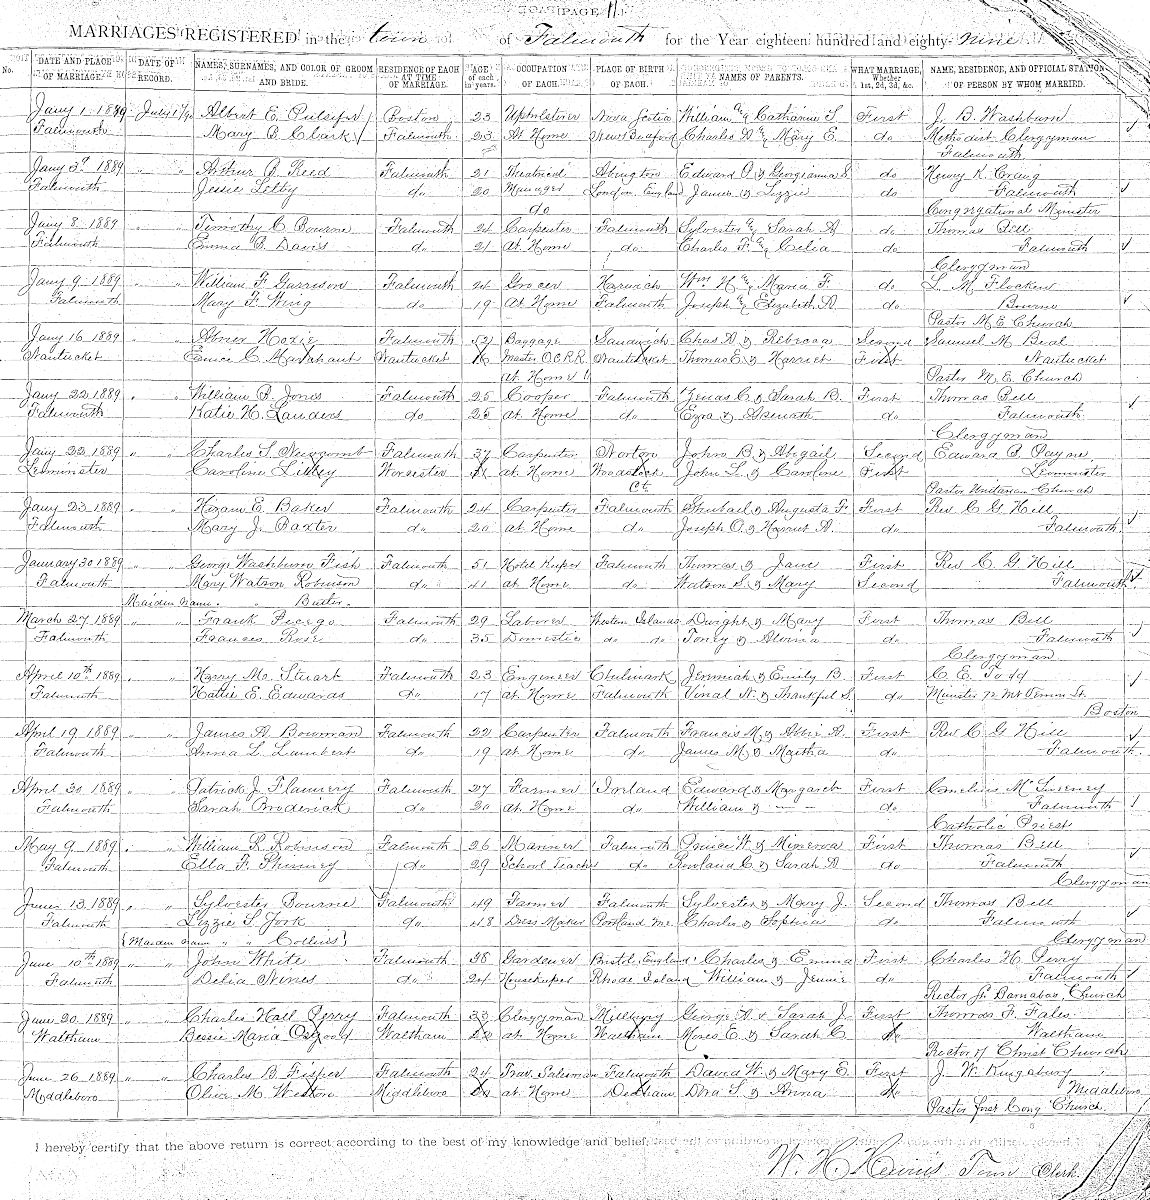 PAGE 11
MARRIAGES REGISTERED in the town of Falmouth for the Year eighteen hundred and eighty-nine
No. DATE AND PLACE OF MARRIAGE. DATE OF RECORD. NAMES, SURNAMES, AND COLOR OF GROOM AND BRIDE. RESIDENCE OF EACH AT TIME OF MARRIAGE. AGE of each in years. OCCUPATION OF EACH. PLACE OF BIRTH OF EACH. NAMES OF PARENTS. WHAT MARRIAGE, Whether 1st, 2d, 3d, &c. NAME, RESIDENCE, AND OFFICIAL STATION OF PERSON BY WHOM MARRIED.
Jany 1. 1889 Albert E. Pulsifer Boston 23 Upholsterer Nova Scotia William & Catharine S. First J. B. Washburn
Falmouth Mary B. Clark Falmouth 23 At Home New Bedford Charles & Mary E. do Methodist Clergyman
Falmouth
Jany 3d 1889 " " Arthur Reed Falmouth 21 Theatrical Abington Edward O. & Georgianna S do Henry K. Craig
Falmouth Jessie Selby do 20 Manager London, England James & Lizzie do Falmouth
do Congregational Minister
Jany 8. 1889 " " Timothy C. Bourne Falmouth 24 Carpenter Falmouth Sylvester & Sarah A do Thomas Bell
Falmouth Emma B. Davis do 21 At Home do Charles F. & Celia do Falmouth
Clergyman
Jany 9. 1889 " " William F. Garrison Falmouth 24 Grocer Harwich Wm H. & Maria F. do L. M. Flocken
Falmouth Mary F. Wing do 19 At Home Falmouth Joseph & Elizabeth A. do Bourne
Pastor M. E. Church
Jany 16 1889 Abner Hoxie Falmouth 52 Baggage Sandwich Chas & Rebecca Second Samuel M. Beal
Nantucket Eunice C. Marchant Nantucket Master O.C.R.R. Nantucket Thomas E. & Harriet First Nantucket
At Home Pastor M. E. Church
Jany 22. 1889 " " William Jones Falmouth 25 Cooper Falmouth Zenas C. & Sarah B. First Thomas Bell
Falmouth Katie H. Landers do 25 at Home do Ezra & Asenath do Falmouth
Clergyman
Jany 22. 1889 " " Charles S. Newcomb Falmouth 37 Carpenter Norton John B. & Abigail Second Edward Payne
Leominster Caroline Libbey Worcester at Home Woodstock John L. & Caroline First Leominster
Ct. Pastor Unitarian Church
Jany 23. 1889 " " Hiram E. Baker Falmouth 24 Carpenter Falmouth Shubael & Augusta F. First Rev C G Hill
Falmouth Mary J. Baxter do 20 at Home do Joseph O. & Harriet A. do Falmouth
January 30 1889 " " George Washburn Fish Falmouth 51 Hotel Keeper Falmouth Thomas & Jane First Rev C. G Hill
Falmouth Mary Watson Robinson do 41 at Home do Watson S. & Mary Second Falmouth
Maiden Name
March 27. 1889 " " Frank Falmouth 29 Laborer Western Islands Dwight & Mary First Thomas Bell
Falmouth Frances Rose do 35 Domestic do do Toney & do Falmouth
Clergyman
April 10th 1889 " " Harry Mc. Stuart Falmouth 23 Engineer Chilmark Jeremiah & Emily B. First C. E. Todd
Falmouth Hattie E. Edwards do 17 at Home Falmouth Vinal N. & Thankful S. do Minister 72 Mt Vernon St.
Boston
April 19. 1889 " " James Bowman Falmouth 22 Carpenter Falmouth Francis M. & Abbie A. First Rev C. G Hill
Falmouth Anna L. Lumbert do 19 at Home do James M. & Martha do Falmouth.
April 30. 1889 " " Patrick J. Flannery Falmouth 27 Farmer Ireland Edward & Margaret First Cornelius McSweeney
Falmouth Sarah Broderick do 20 at Home do William & — — do Falmouth
Catholic Priest
May 9. 1889 " William R. Robinson Falmouth 26 Mariner Falmouth Prince H. & Minerva First Thomas Bell
Falmouth Ella F. Phinney do 29 School Teacher do Rowland C. & Sarah A do Falmouth
Clergyman
June 13. 1889 " " Sylvester Bourne Falmouth 49 Farmer Falmouth Sylvester & Mary J. Second Thomas Bell
Falmouth Lizzie S. York do 48 Dress Maker Portland Me. Charles & Sophia do Falmouth
{Maiden Name " " Collins} Clergyman
June 10th 1889 " " John White Falmouth 38 Gardener Bristol, England Charles & Emma First Charles H. Perry
Falmouth Delia Nines do 24 Housekeeper Rhode Island William & Jennie do Falmouth
Rector St Barnabas Church
June 20. 1889 " " Charles Hall Perry Falmouth 33 Clergyman Millbury George A. & Sarah J. First Thomas F. Fales
Waltham Bessie Maria Osgood Waltham at Home Waltham Moses E. & Sarah C. Waltham
Rector of Christ Church
June 26. 1889 " " Charles B. Fisher Falmouth 24 Trav. Salesman Falmouth David W. & Mary E First J. W. Kingsbury
Middleboro Olive M. Weston Middleboro at Home Dedham & Anna Middleboro
Pastor first Cong. Church
I hereby certify that the above return is correct according to the best of my knowledge and belief.
W. H. Hewins Town Clerk